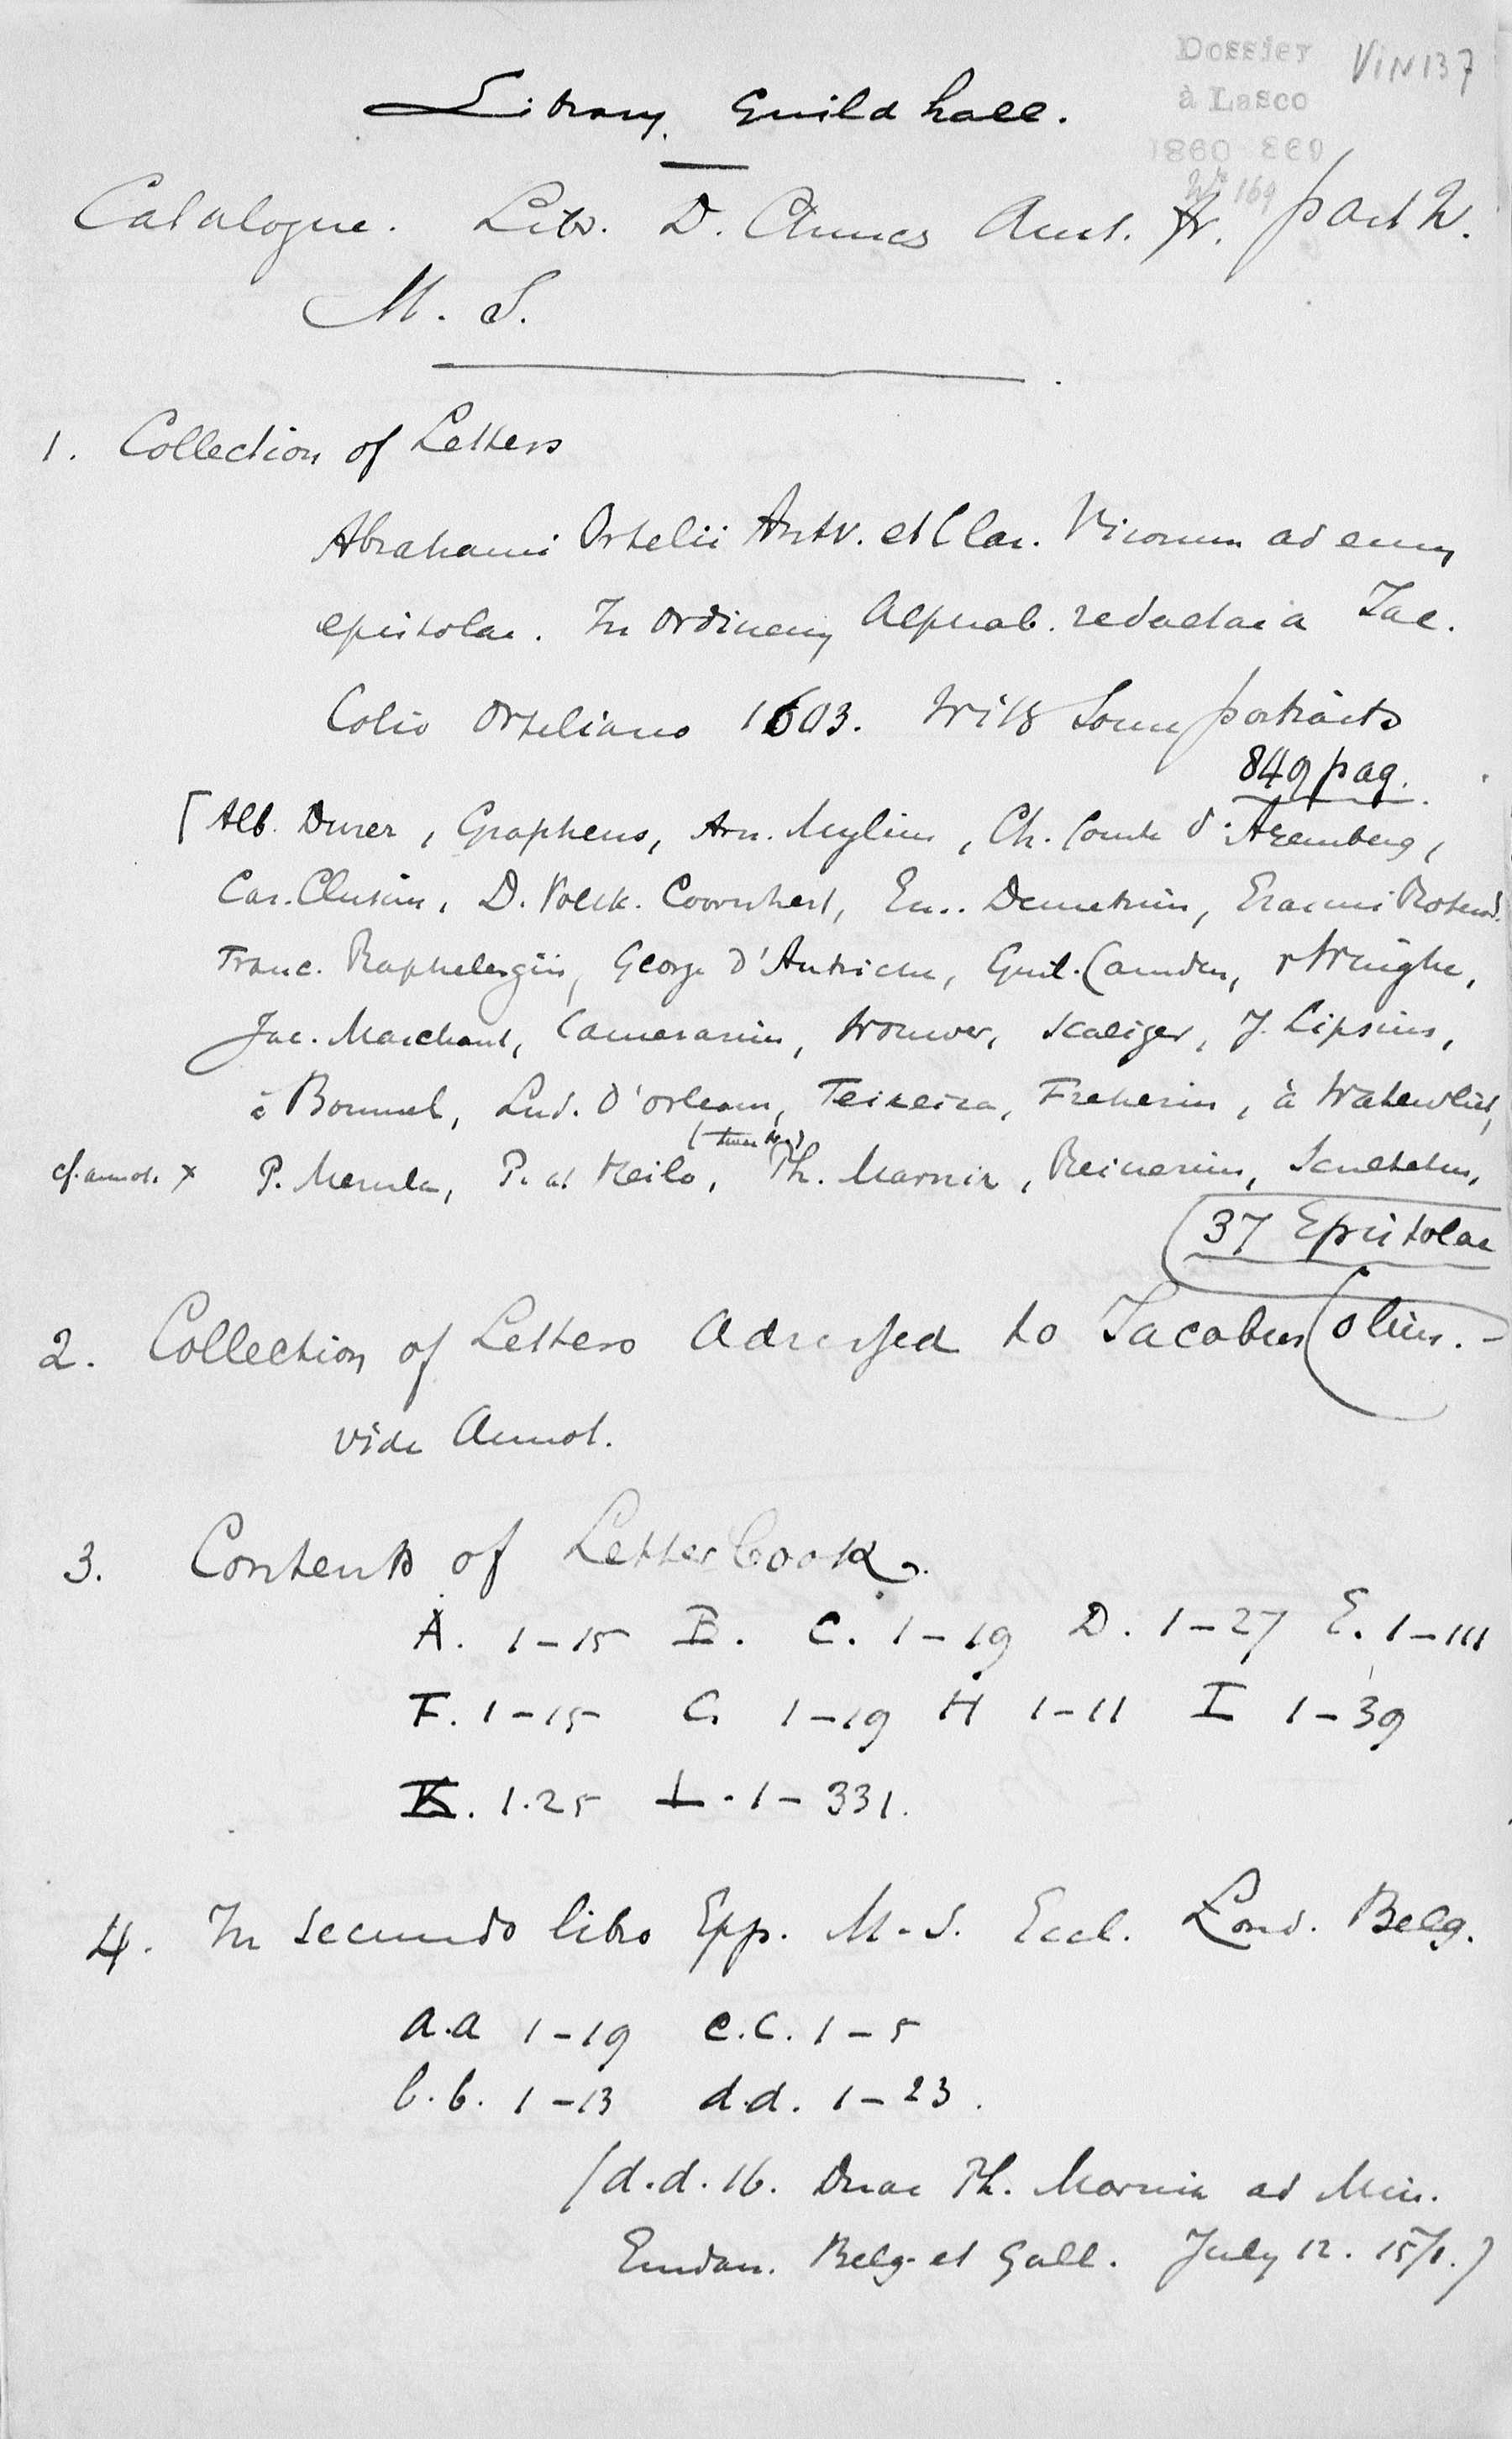 Dossier VIN137
à Lasco
1860
Wr 169
Library. Guildhall.
Catalogue. Lib. D. Annes Aust. Fr. part 2.
M. S.
1. Collection of Letters
Abrahami Ortelii Antv. et Clar. Virorum ad eum
epistolae. In ordinem Alphab. redactae a Jac.
Colio Orteliano 1603. With Some portraits
849 pag.
[Alb. Durer, Grapheus, Arn. Mylius, Ch. Comte d'Aremberg,
Car. Clusius, D. Volck. Coornhert, Em. Demetrius, Erasmi Roterd.
Franc. Raphelengius, George d'Autriche, Guil. Camden, v Winghe,
Jac. Marchant, Camerarius, Wouwer, Scaliger, J. Lipsius,
à Bommel, Lud. d'Orleans, Teixeira, Freherus, à Watervliet,
cf. annot. x P. Merula, P. ab Heilo, Th. Marnix, Reinerius, Scultetus,
37 Epistolae
2. Collection of Letters Adressed to Jacobus Colius. -
vide Annot.
3. Contents of Letterbook.
A. 1-15 B. C. 1-19 D. 1-27 E. 1-111
F. 1-15 G. 1-19 H 1-11 I 1-39
K. 1.25 L. 1-331.
4. In secundo libro Epp. M.S. Eccl. Lond. Belg.
a.a 1-19 c.c. 1-5
b.b. 1-13 d.d. 1-23.
(d.d. 16. Duae Th. Marnix ad Min.
Emdan. Belg. et Gall. July 12. 1571.)